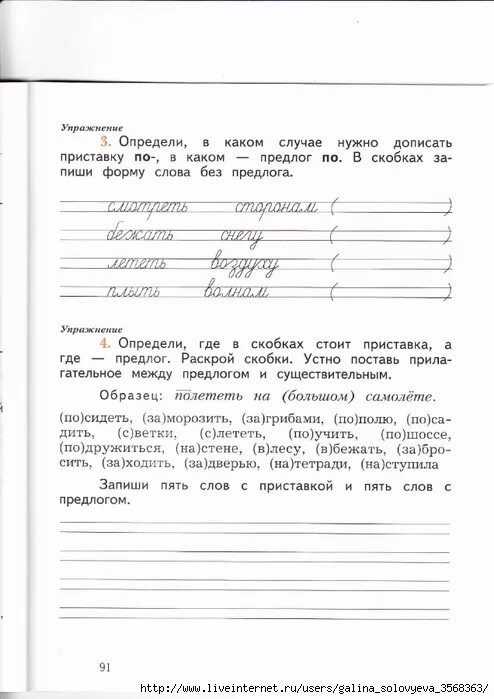 Упражнение
3. Определи, в каком случае нужно дописать
приставку по-, в каком — предлог по. В скобках за-
пиши форму слова без предлога.
смотреть сторонам ( )
бежать снегу ( )
лететь воздуху ( )
плыть волнам ( )
Упражнение
4. Определи, где в скобках стоит приставка, а
где — предлог. Раскрой скобки. Устно поставь прила-
гательное между предлогом и существительным.
Образец: полететь на (большом) самолёте.
(по)сидеть, (за)морозить, (за)грибами, (по)полю, (по)са-
дить, (с)ветки, (с)лететь, (по)учить, (по)шоссе,
(по)дружиться, (на)стене, (в)лесу, (в)бежать, (за)бро-
сить, (за)ходить, (за)дверью, (на)тетради, (на)ступила
Запиши пять слов с приставкой и пять слов с
предлогом.
91
http://www.liveinternet.ru/users/galina_solovyeva_3568363/